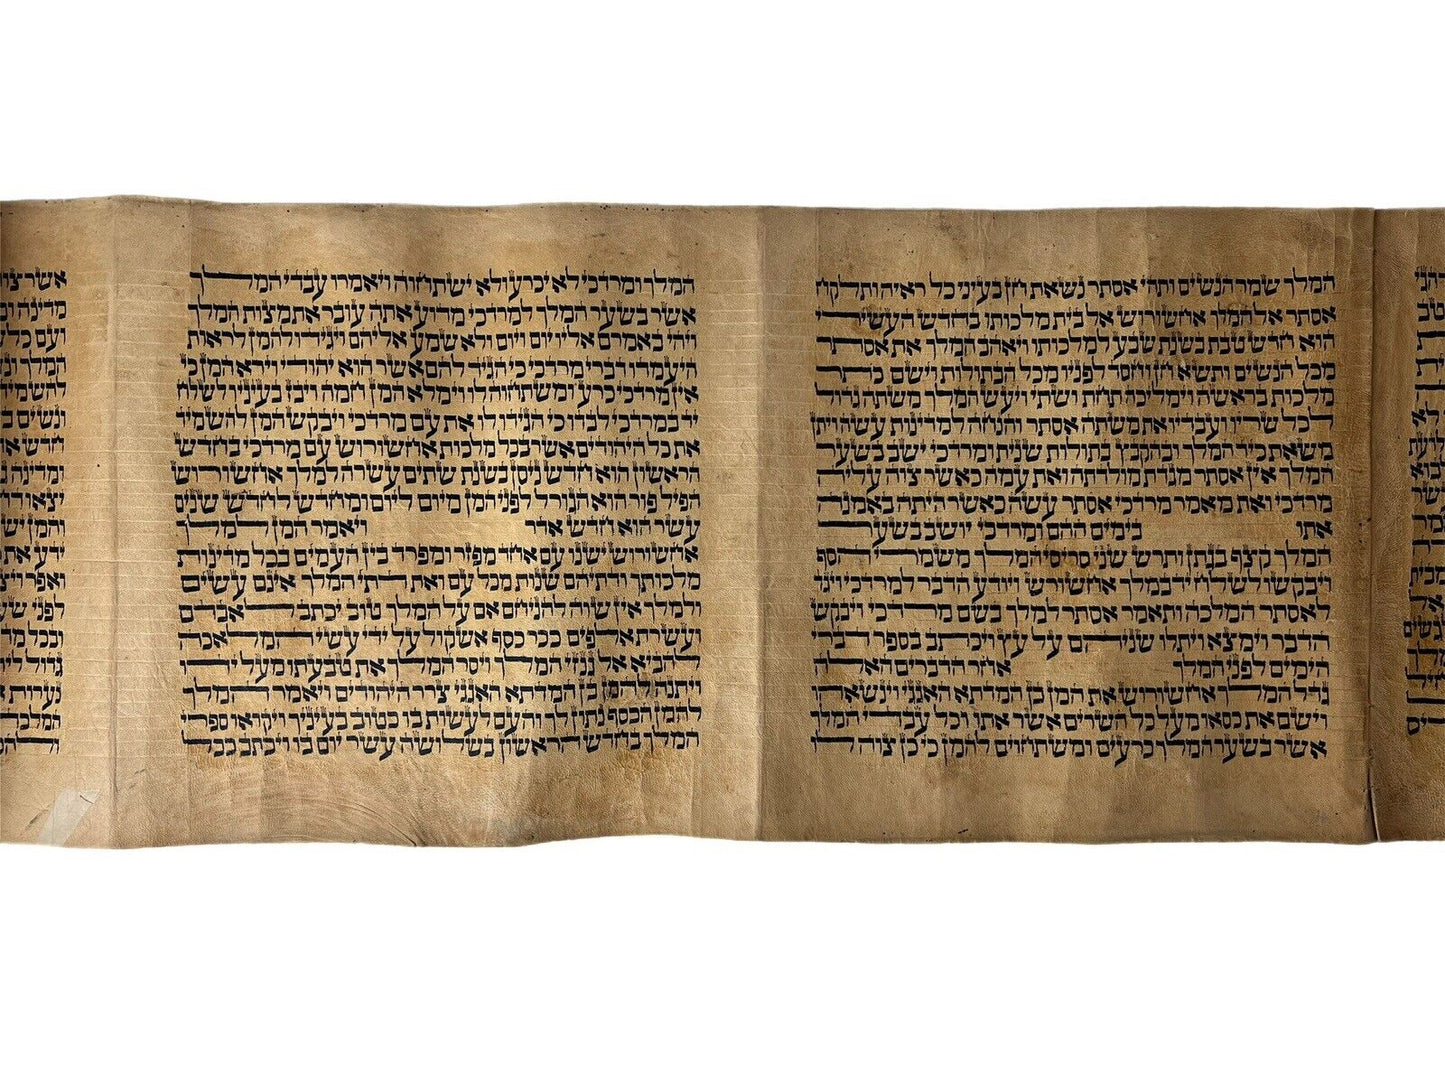 המלך שמר הנשים ותהי אסתר נשאת חן בעיני כל ראיה ותלקח
אסתר אל המלך אחשורוש אל בית מלכותו בחדש העשירי
הוא חדש טבת בשנת שבע למלכותו ויאהב המלך את אסתר
מכל הנשים ותשא חן וחסד לפניו מכל הבתולות וישם כתר
מלכות בראשה וימליכה תחת ושתי ויעש המלך משתה גדול
לכל שריו ועבדיו את משתה אסתר והנחה למדינות עשה ויתן
משאת כיד המלך ובהקבץ בתולות שנית ומרדכי ישב בשער
המלך אין אסתר מגדת מולדתה ואת עמה כאשר צוה עליה
מרדכי ואת מאמר מרדכי אסתר עשה כאשר היתה באמנה
אתו בימים ההם ומרדכי יושב בשער
המלך קצף בגתן ותרש שני סריסי המלך משמרי הסף
ויבקשו לשלח יד במלך אחשורוש ויודע הדבר למרדכי ויגד
לאסתר המלכה ותאמר אסתר למלך בשם מרדכי ויבקש
הדבר וימצא ויתלו שניהם על עץ ויכתב בספר דברי
הימים לפני המלך אחר הדברים האלה
גדל המלך אחשורוש את המן בן המדתא האגגי וינשאהו
וישם את כסאו מעל כל השרים אשר אתו וכל עבדי המלך
אשר בשער המלך כרעים ומשתחוים להמן כי כן צוה לו
המלך ומרדכי לא יכרע ולא ישתחוה ויאמרו עבדי המלך
אשר בשער המלך למרדכי מדוע אתה עובר את מצות המלך
ויהי באמרם אליו יום ויום ולא שמע אליהם ויגידו להמן לראות
היעמדו דברי מרדכי כי הגיד להם אשר הוא יהודי וירא המן כי
אין מרדכי כרע ומשתחוה לו וימלא המן חמה ויבז בעיניו לשלח
יד במרדכי לבדו כי הגידו לו את עם מרדכי ויבקש המן להשמיד
את כל היהודים אשר בכל מלכות אחשורוש עם מרדכי בחדש
הראשון הוא חדש ניסן בשנת שתים עשרה למלך אחשורוש
הפיל פור הוא הגורל לפני המן מיום ליום ומחדש לחדש שנים
עשר הוא חדש אדר ויאמר המן למלך
אחשורוש ישנו עם אחד מפזר ומפרד בין העמים בכל מדינות
מלכותך ודתיהם שנות מכל עם ואת דתי המלך אינם עשים
ולמלך אין שוה להניחם אם על המלך טוב יכתב לאבדם
ועשרת אלפים ככר כסף אשקול על ידי עשי המלאכה
להביא אל גנזי המלך ויסר המלך את טבעתו מעל ידו
ויתנה להמן בן המדתא האגגי צרר היהודים ויאמר המלך
להמן הכסף נתון לך והעם לעשות בו כטוב בעיניך ויקראו ספרי
המלך בחדש הראשון בשלושה עשר יום בו ויכתב ככל
אשר צוה
מדינה
ועם כל
המלך
להשמיד
ונשים
חדש
מדינה
יצאו
והמן
ידע
ואפר
לפני
ובכל
גדול
נערות
המלכה